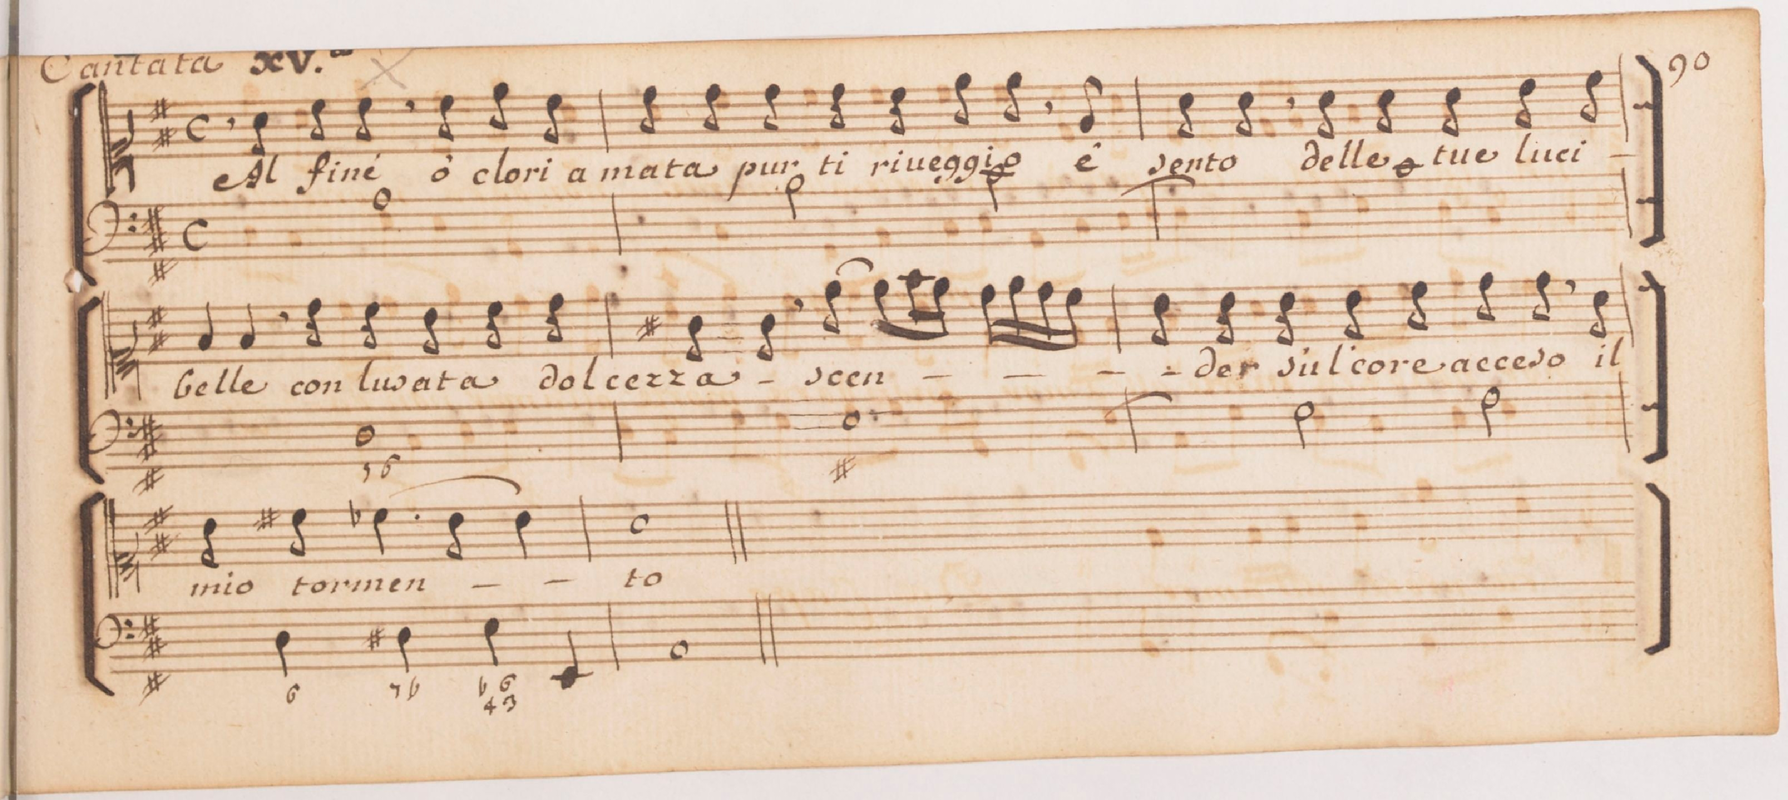 Cantata XV.a
90
Al finé ò clori amata pur ti riueggio é sento delle tue luci -
belle con lusata dolcezza - scen - - - - der sul core acceso il
7 6
mio tormen - - to
6 7 6 b 6
4 3